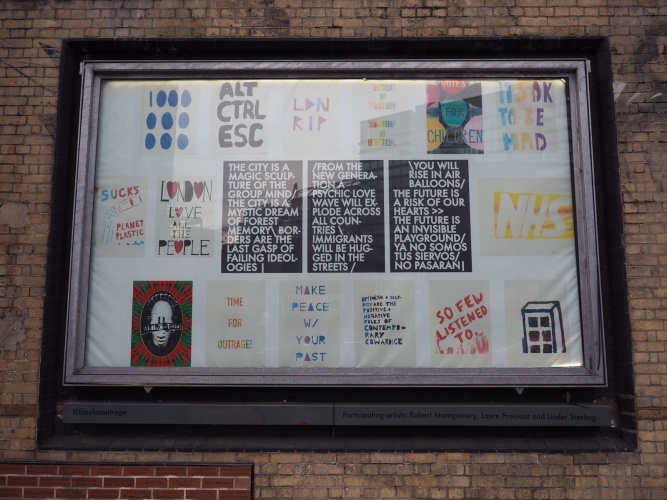 1000
ALT
CTRL
ESC
LDN
RIP
VOTES
FOR
CHILDREN
IT'S OK
TO BE
MAD
SUCKS
PLANET
PLASTIC
LONDON
LOVE
ALL
THE
PEOPLE
THE CITY IS A
MAGIC SCULP-
TURE OF THE
GROUP MIND/
THE CITY IS A
MYSTIC DREAM
OF FOREST
MEMORY\ BOR-
DERS ARE THE
LAST GASP OF
FAILING IDEOL-
OGIES |
/FROM THE
NEW GENERA-
TION A
PSYCHIC LOVE
WAVE WILL EX-
PLODE ACROSS
ALL COUN-
TRIES \
IMMIGRANTS
WILL BE HUG-
GED IN THE
STREETS /
\YOU WILL
RISE IN AIR
BALLOONS/
THE FUTURE IS
A RISK OF OUR
HEARTS >>
THE FUTURE IS
AN INVISIBLE
PLAYGROUND/
YA NO SOMOS
TUS SIERVOS/
NO PASARAN|
NHS
TIME
FOR
OUTRAGE!
MAKE
PEACE
W/
YOUR
PAST
OPTIMISM + SELF-
PITY ARE THE
POSITIVE +
NEGATIVE
POLES OF
CONTEMPO-
RARY
COWARDICE
SO FEW
LISTENED
TO
@timeforoutrage
Participating artists: Robert Montgomery, Laure Prouvost and Linder Sterling.